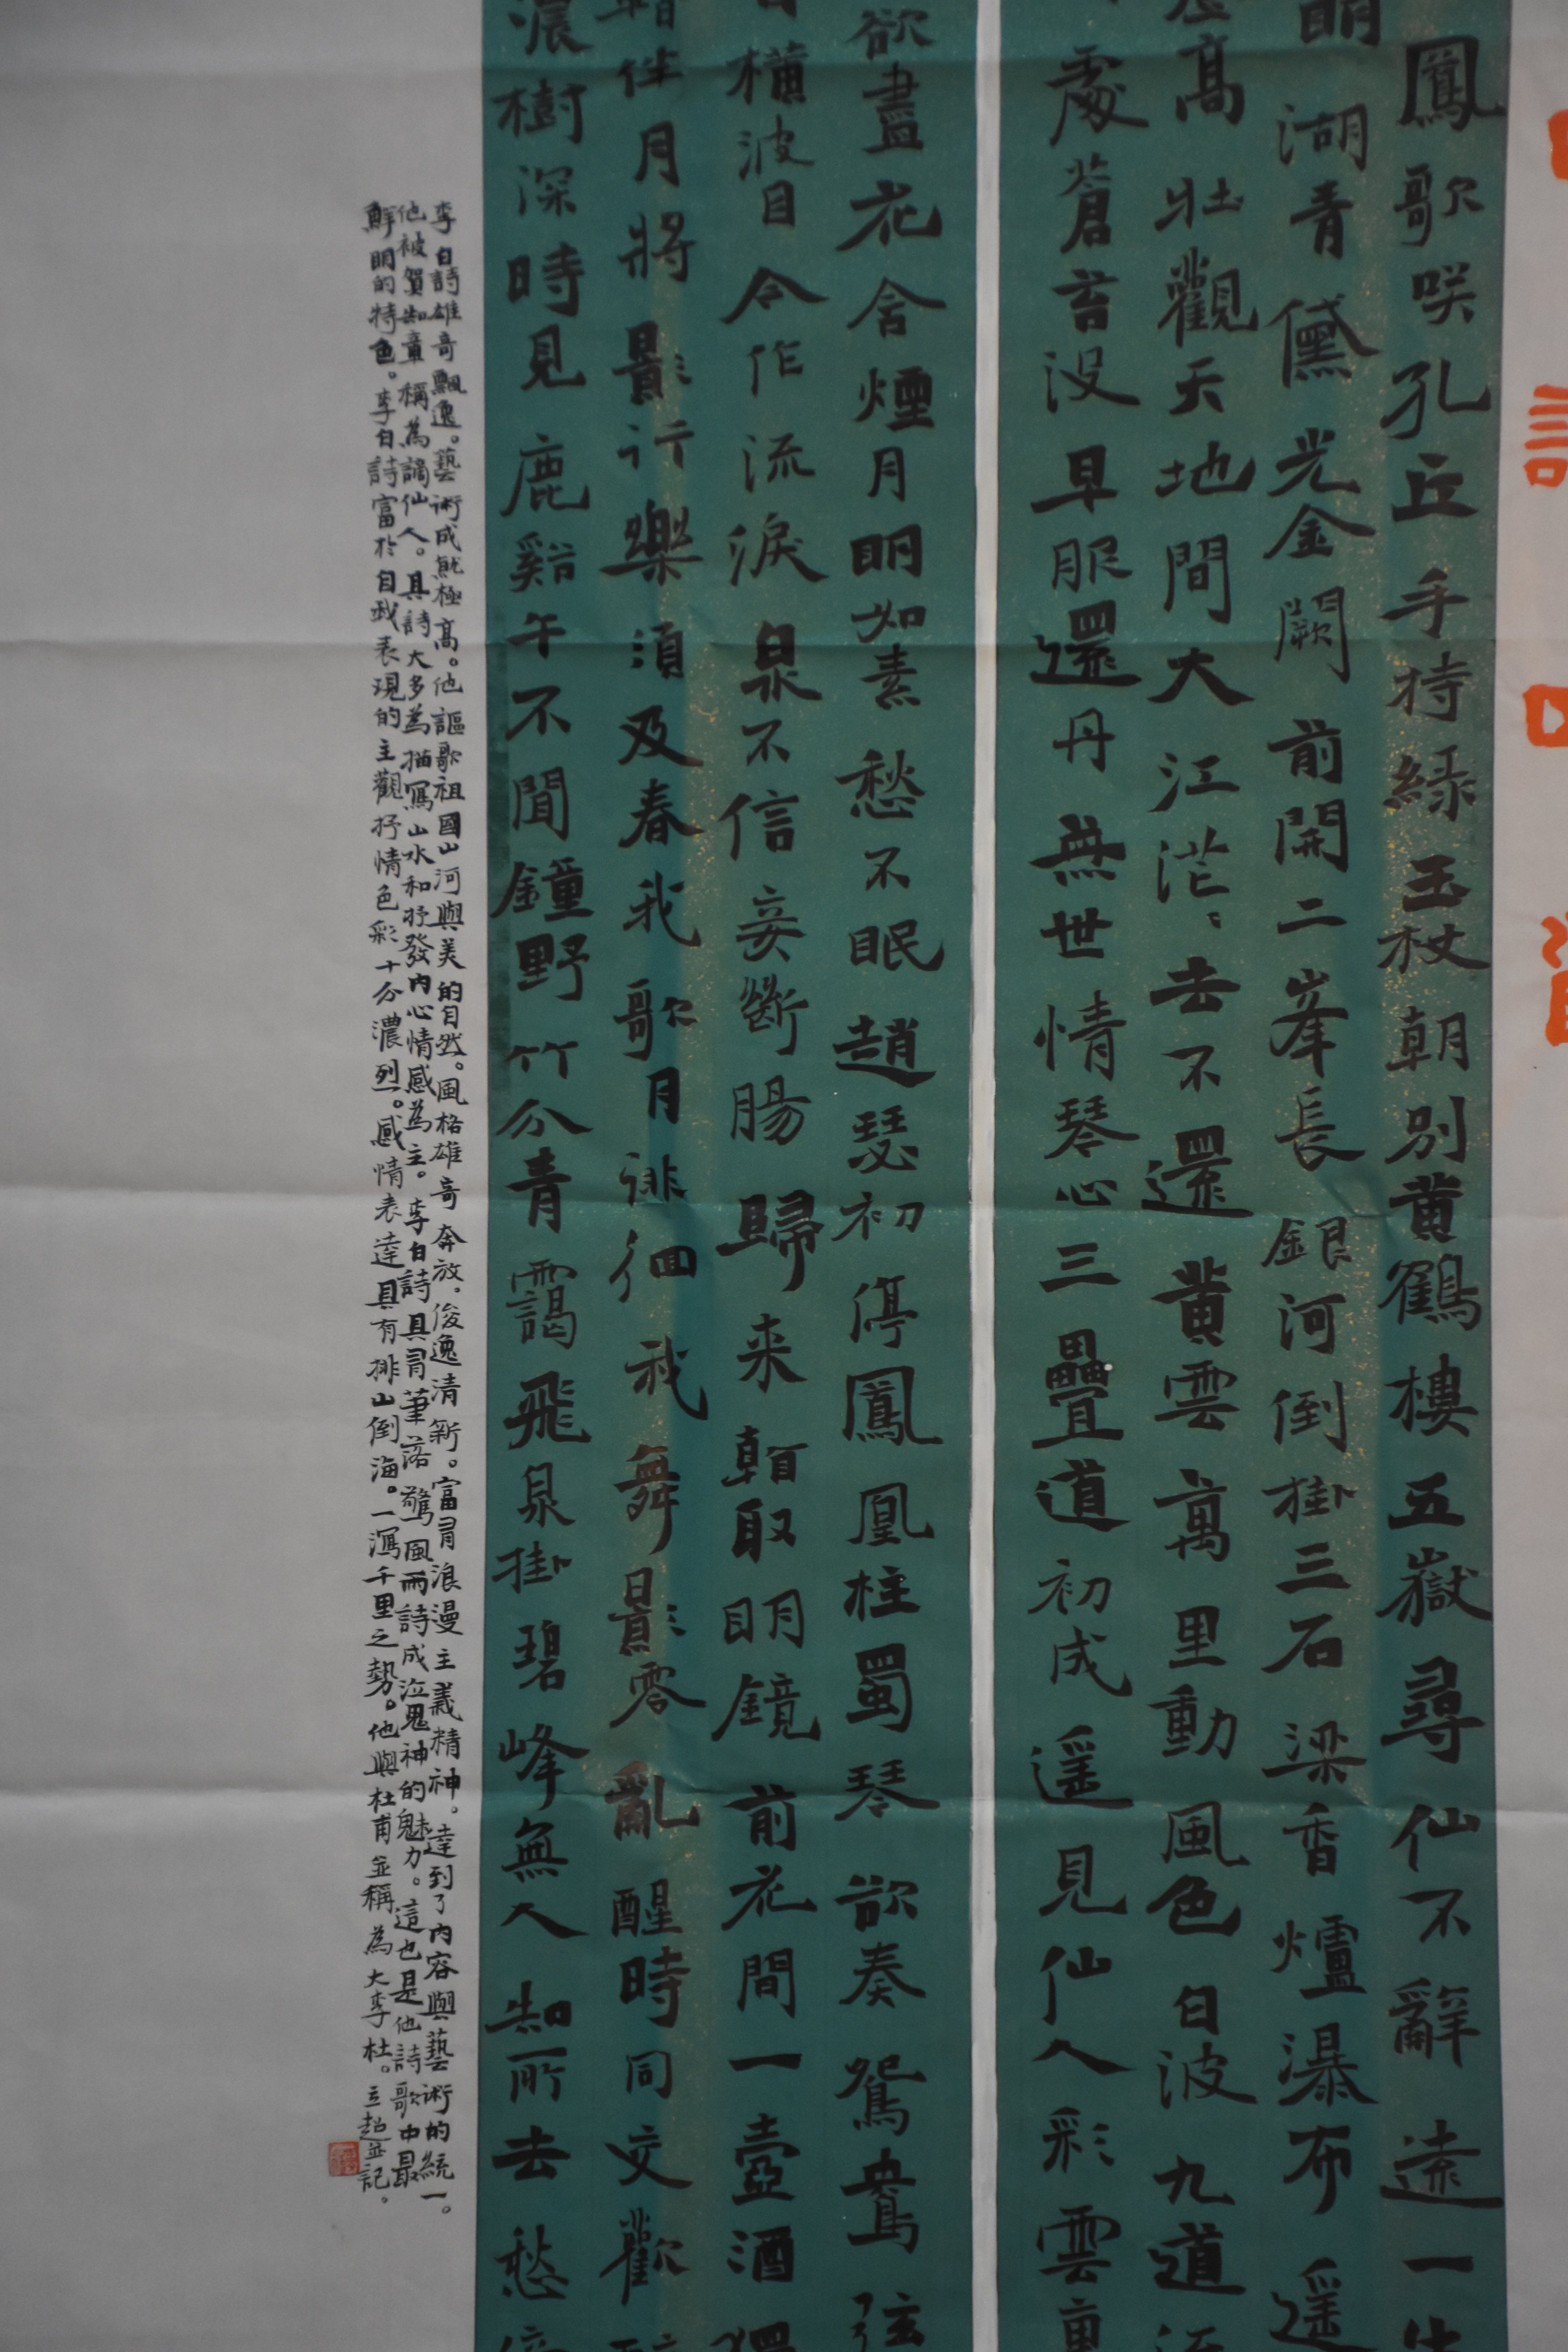 鳳歌咲孔丘手持緑玉杖朝別黄鶴樓五嶽尋仙不辭遠一生
明湖青黛光金闕前開二峯長銀河倒掛三石梁香爐瀑布遥
高壯觀天地間大江茫〻去不還黄雲萬里動風色白波九道流
處蒼苔没早服還丹無世情琴心三疊道初成遥見仙人彩雲裏
欲盡花含煙月明如素愁不眠趙瑟初停鳳凰柱蜀琴欲奏鴛鴦弦
昔橫波目今作流淚泉不信妾斷腸歸来看取明鏡前花間一壺酒獨
暫伴月將影行樂須及春我歌月徘徊我舞影零亂醒時同交歡醉
濃樹深時見鹿谿午不聞鐘野竹分青靄飛泉掛碧峰無人知所去愁倚
李白詩雄奇飄逸。藝術成就極高。他謳歌祖國山河與美的自然。風格雄奇奔放。俊逸清新。富有浪漫主義精神。達到了内容與藝術的統一。
他被賀知章稱為謫仙人。其詩大多為描寫山水和抒發内心情感為主。李白詩具有筆落驚風雨詩成泣鬼神的魅力。這也是他詩歌中最
鮮明的特色。李白詩富於自我表現的主觀抒情色彩十分濃烈。感情表達具有排山倒海。一瀉千里之勢。他與杜甫並稱為大李杜。立超並記。